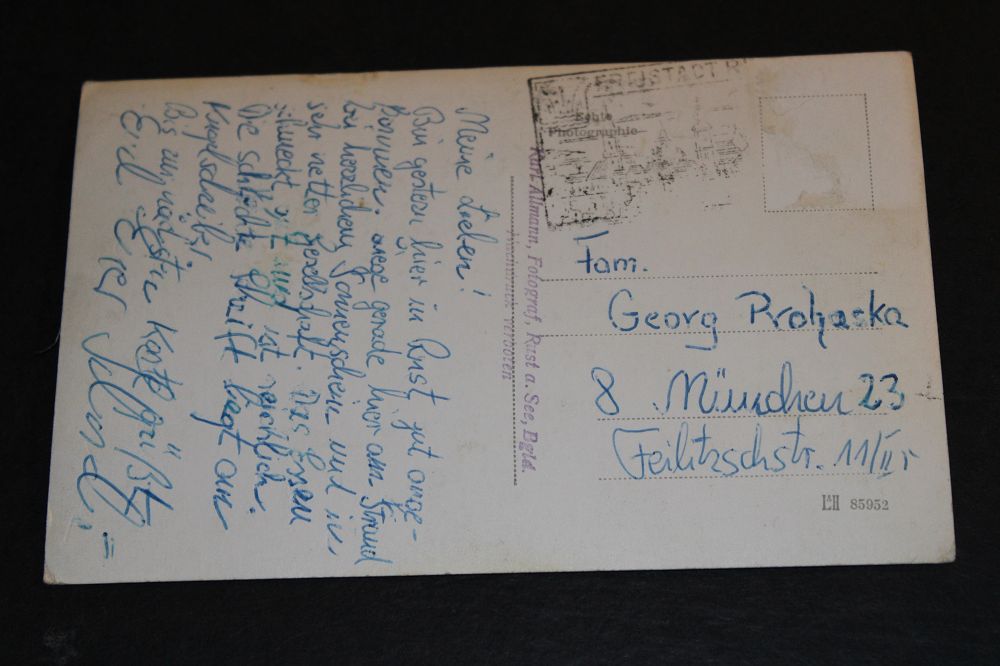 Meine Lieben!
Bin gestern hier in Rust gut ange-
kommen. Liege gerade hier am Strand
bei herrlichem Sonnenschein und in
sehr netter Gesellschaft. Das Essen
schmeckt gut und ist reichlich.
Die schlechte Schrift liegt am
Bis zur nächsten Karte grüßt
Euch Euer
FREISTADT R
Echte
Photographie
Karl Allmann, Fotograf, Rust a. See, Bgld.
Nachdruck verboten
Fam.
Georg Prohaska
8 München 23
Feilitzschstr. 11/II r
L&H 85952